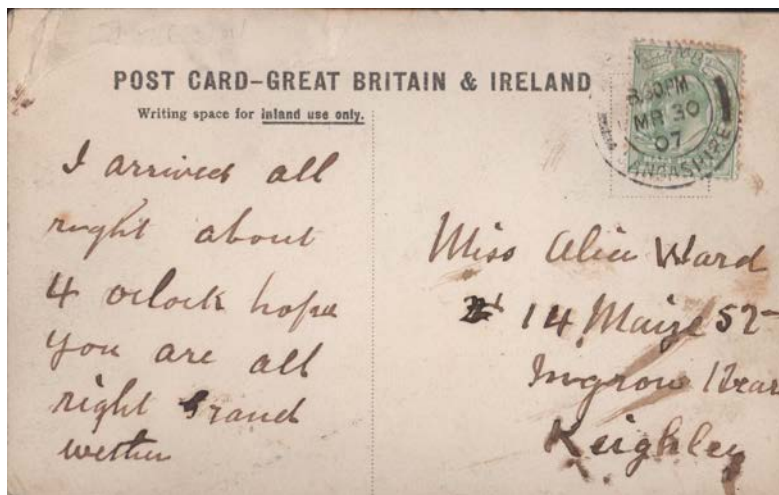 POST CARD-GREAT BRITAIN & IRELAND
Writing space for inland use only.
I arrived all
right about
4 oclock hope
you are all
right Grand
wether
8.30PM
MR 30
07
LANCASHIRE
Miss Alice Ward
14 Maize St
Ingrow Near
Keighley